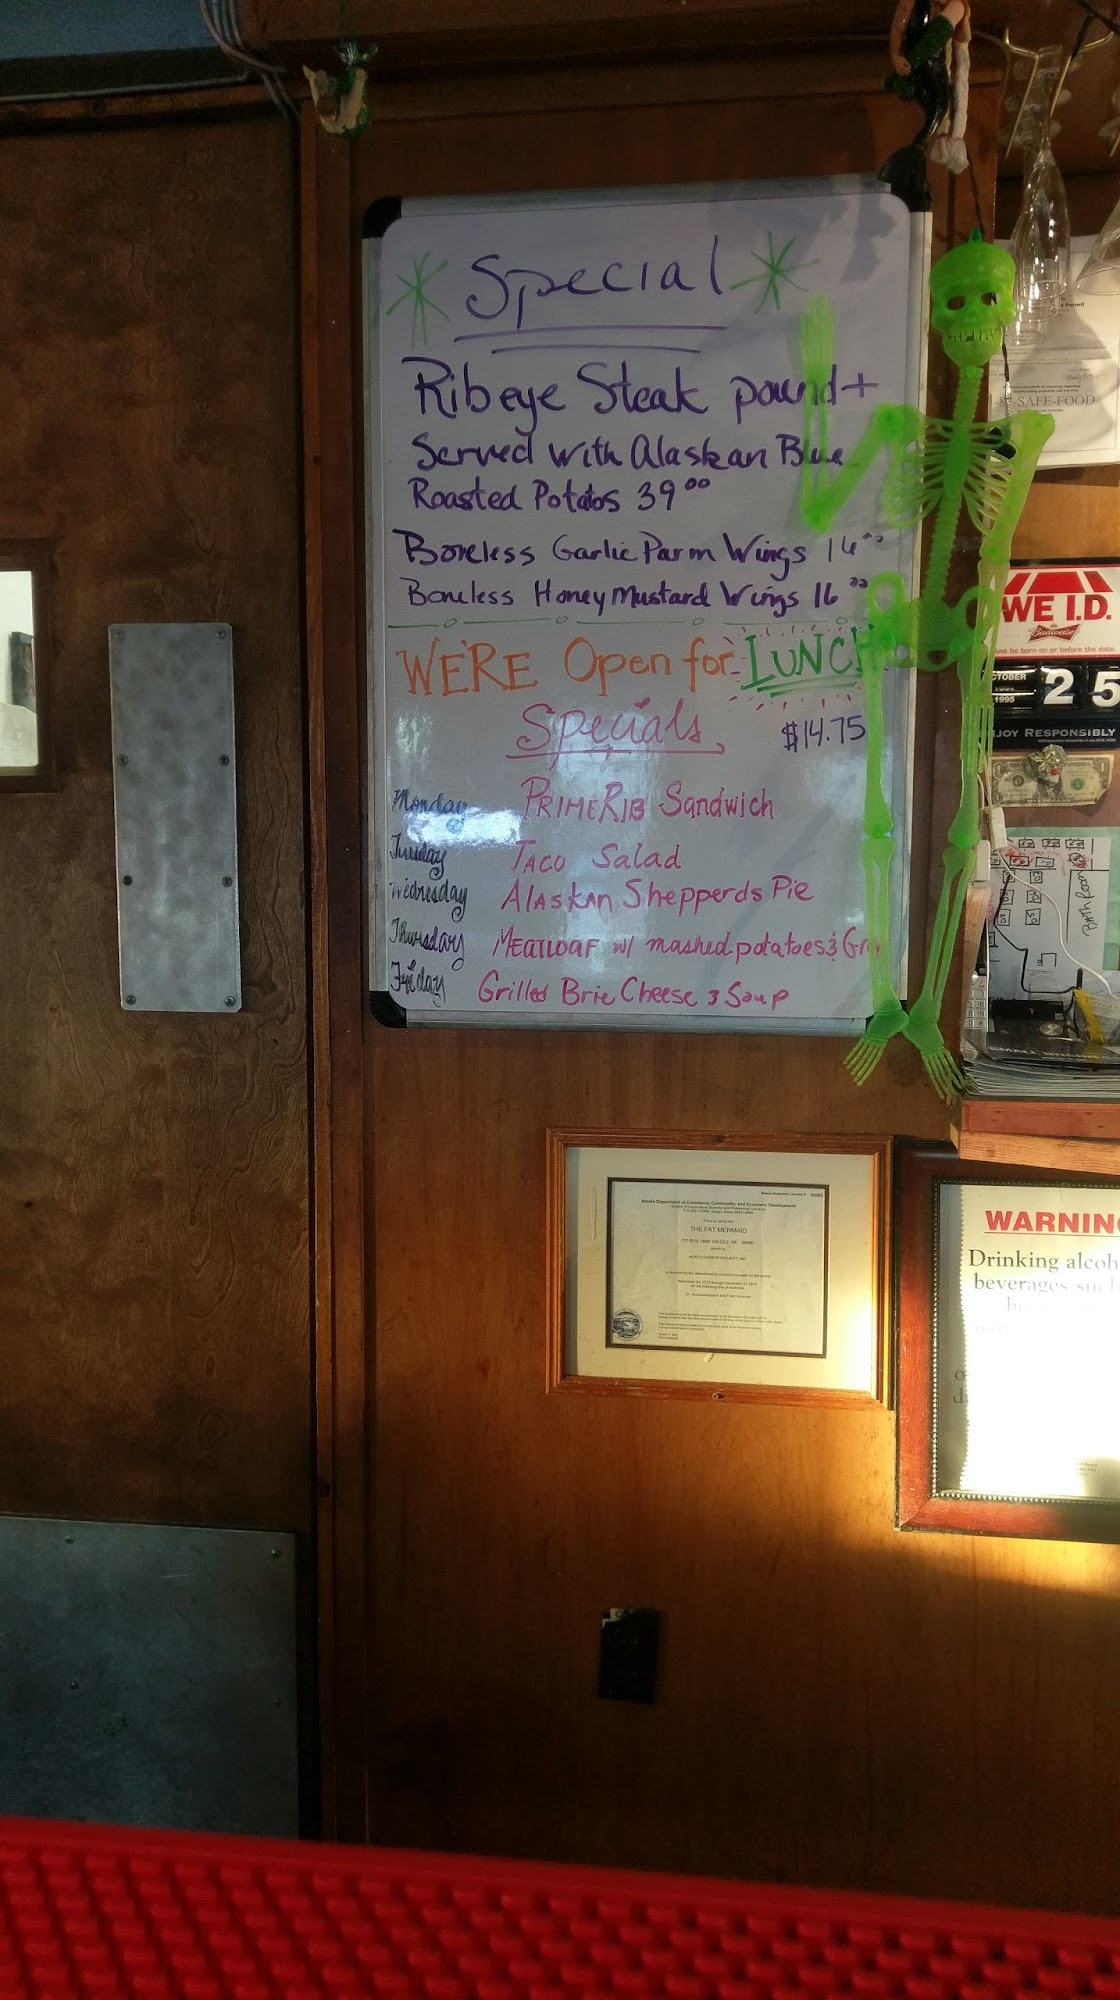 Special
Ribeye Steak pound+
Served with Alaskan Blue
Roasted Potatos 39⁰⁰
Boneless Garlic Parm Wings 16⁰⁰
Boneless Honey Mustard Wings 16⁰⁰
WE'RE Open for LUNCH
Specials
$14.75
Monday PRIME RIB Sandwich
Tuesday TACO Salad
Wednesday ALASKAN Shepperds Pie
Thursday MEATLOAF w/ mashed potatoes & Gra
Friday Grilled Brie Cheese & Soup
Permit
-SAFE-FOOD
WE I.D.
Budweiser
must be born on or before the date.
OCTOBER
1995
25
ENJOY RESPONSIBLY
BATHROOM
Alaska Department of Commerce, Community, and Economic Development
This is to certify that
THE FAT MERMAID
PO BOX VALDEZ AK
owned by
NORTH HARBOR PROJECT, INC.
WARNING
Drinking alcoh
beverages such